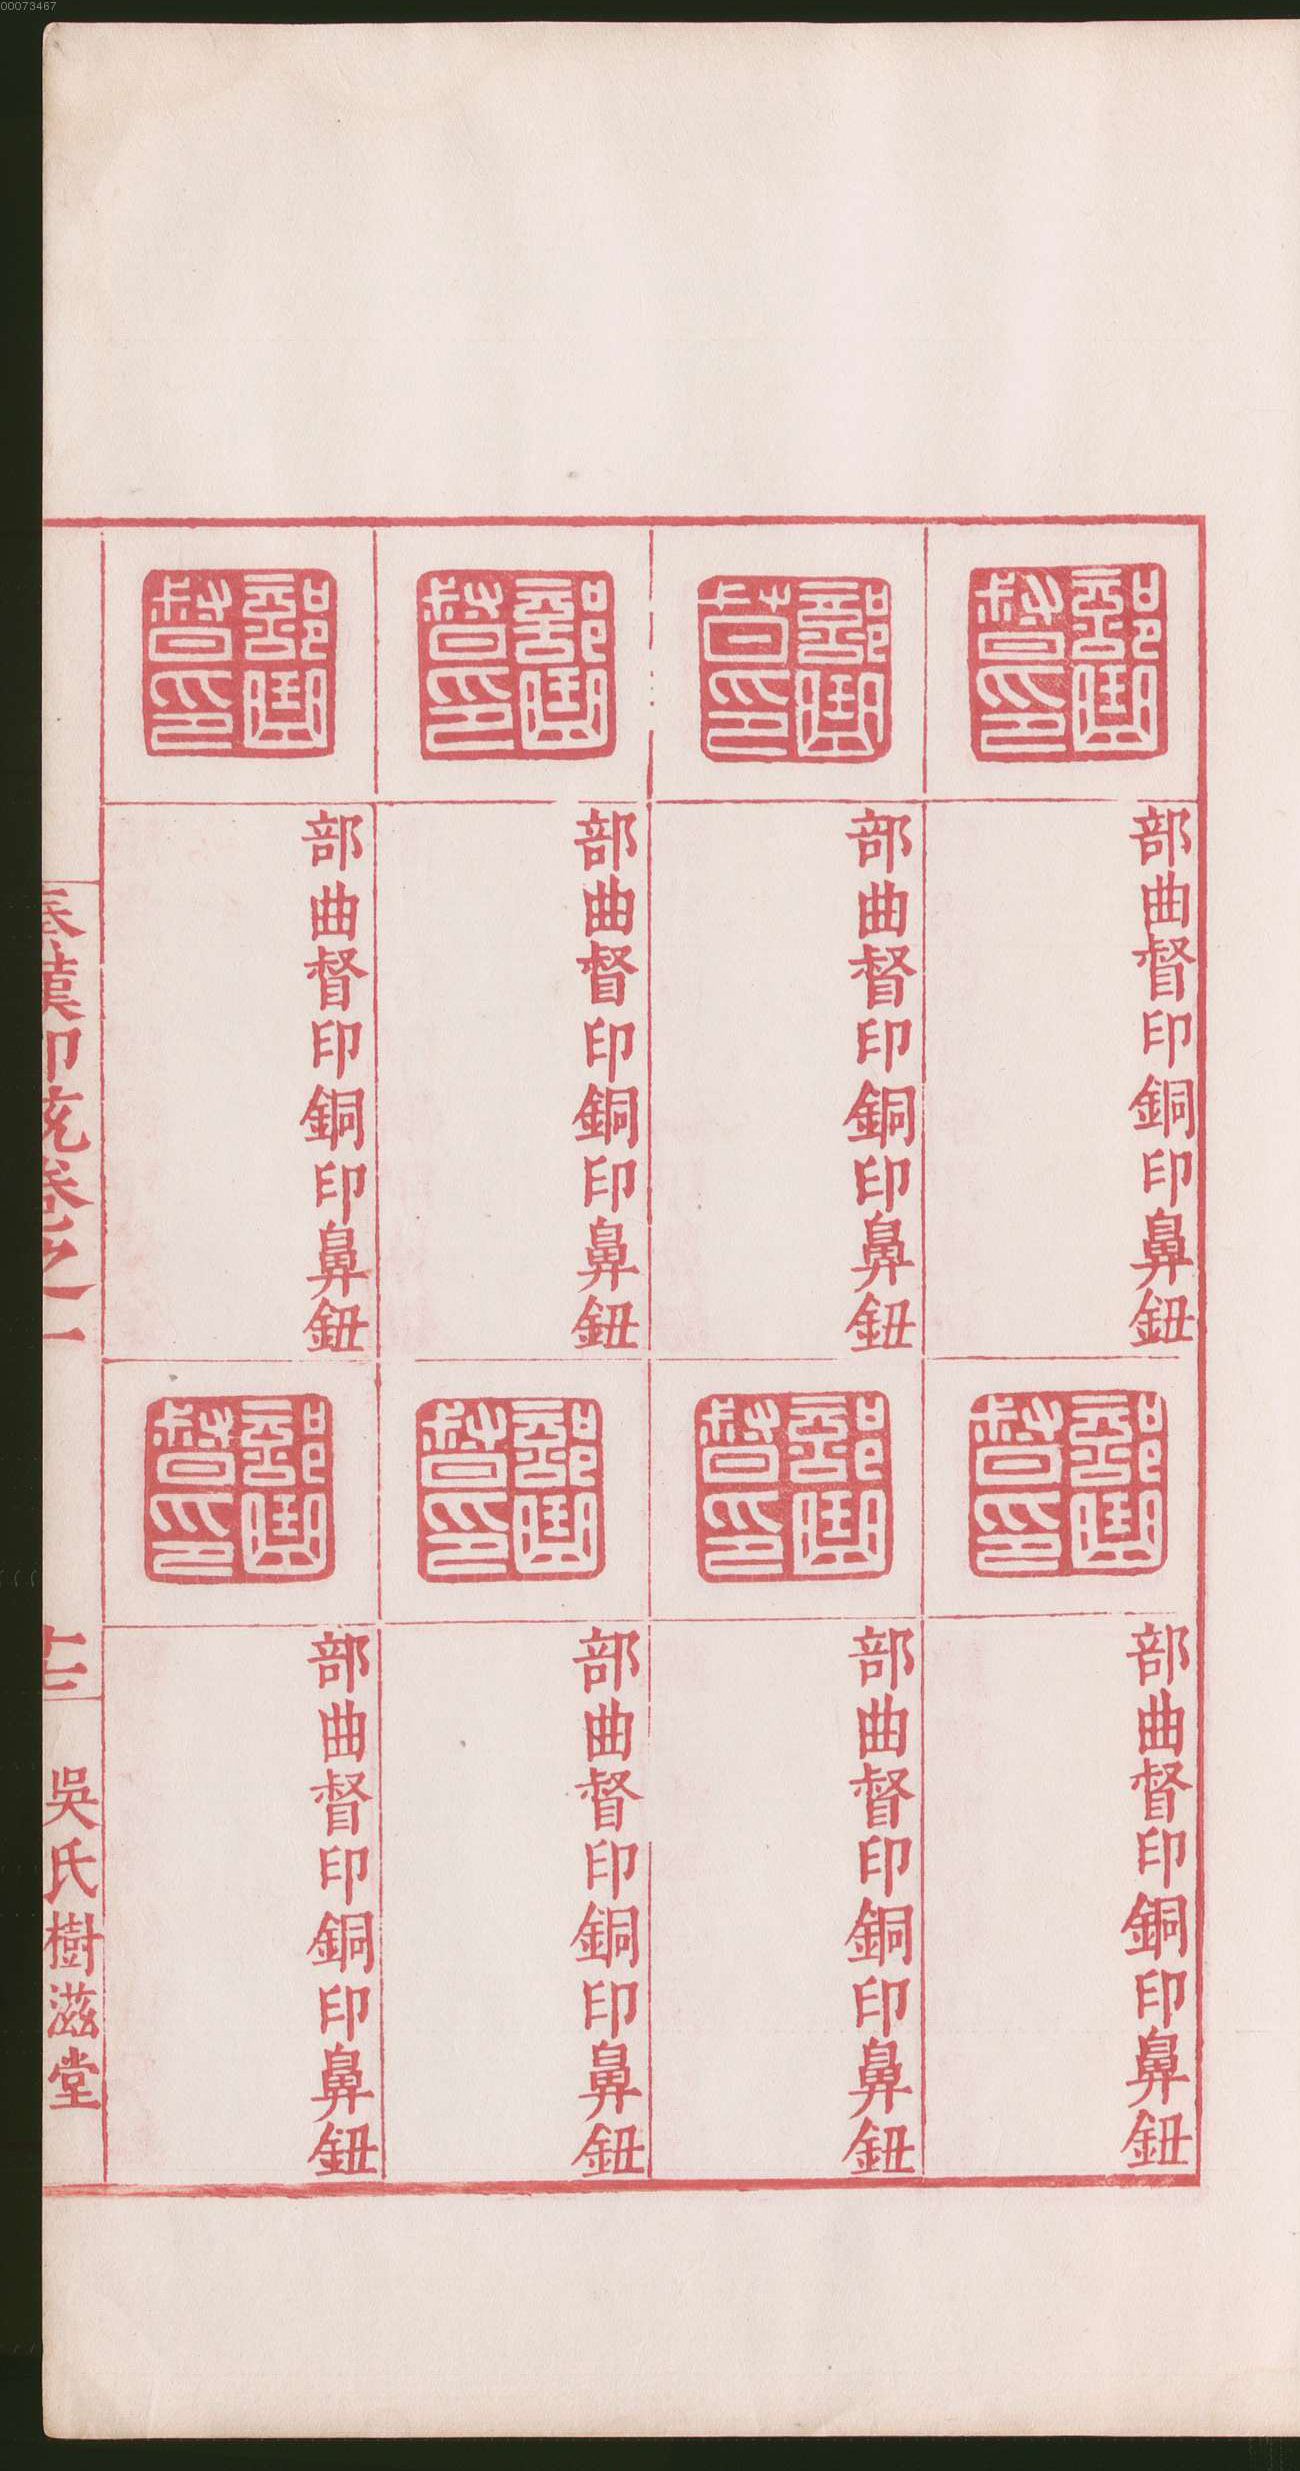 00073467
部曲督印
部曲督印銅印鼻鈕
部曲督印
部曲督印銅印鼻鈕
部曲督印
部曲督印銅印鼻鈕
部曲督印
部曲督印銅印鼻鈕
部曲督印
部曲督印銅印鼻鈕
部曲督印
部曲督印銅印鼻鈕
部曲督印
部曲督印銅印鼻鈕
部曲督印
部曲督印銅印鼻鈕
秦漢印統卷之一
吳氏樹滋堂